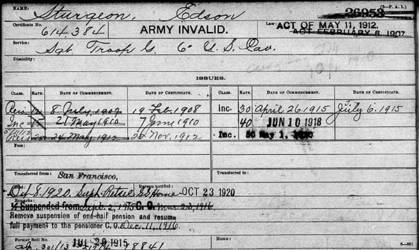 Sturgeon, Edson
26053
(P.-A.I.)
Certificate No. 614384
ARMY INVALID.
Law: ACT OF MAY 11, 1912.
ACT FEBRUARY 6, 1907
Service: Sgt Troop G 6" U.S. Cav.
Disability:
ISSUES.
CLASS. RATE. DATE OF COMMENCEMENT. DATE OF CERTIFICATE. CLASS. RATE. DATE OF COMMENCEMENT. DATE OF CERTIFICATE.
8 July, 1907 19 Feb. 1908 Inc. 30 April 26 1915 July 6, 1915
21 May 1910 7 June 1910 40 JUN 10 1918
24 May 1912 26 Nov. 1912 Inc. 50 May 1, 1920
Transferred from San Francisco,
Oct 8, 1920 Home OCT 23 1920
½ Suspended from Sept. 2, C.O. Nov. 23, 1916.
Remove suspension of one-half pension and resume
full payment to the pensioner C.O. Dec. 11, 1916.
1915